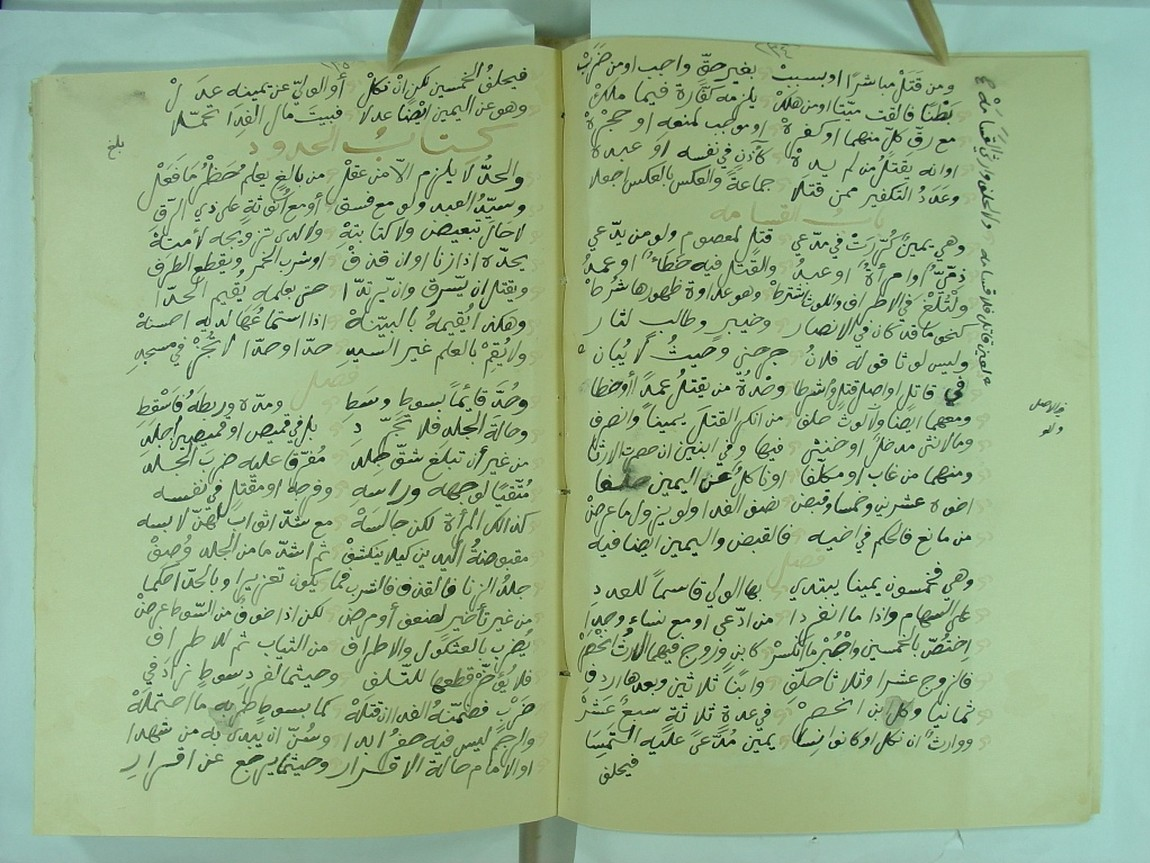 ومن قتل مباشرا او بسبب بغير حق واجب او من ضرب
بطنا فالقت ميتا او من هلك يلزمه كفارة فيما ملك
مع رق كل منهما او كفره او موجب لمنعه او حجره
او انه يقتل من لم يده كآذن في نفسه او عبده
وعدد التكفير ممن قتلا جماعة والعكس بالعكس اجعلا
باب القسامه
وهي يمين كررت في مدعي قتل لمعصوم ولو من يدعي
ذمي او امرأة او عبد والقتل فيه خطاء او عمد
ولتلغ في الاطراف واللوث اشترط وهو عداوة ظهورها شرط
كنحو ما قد كان في الانصار وخيبر وطالب لثار
وليس لوثا قوله فلان جرحني وحيث لا يبان
في قاتل او اصل قتل واشرطا وحدة من يقتل عمدا أو خطا
ومعهما ايضا ولا لوث حلف من انكر القتل يمينا وانصرف
وما لانثى مدخل او خنثى فيها وفي ابنين ان حصت الارثا
ومنهما من غاب او مكلفا او ناكل عن اليمين حلفا
اخوه عشرين وخمسا وقبض نصف الفدا ولو يزول ما عرض
من مانع فالحكم في اخيه فالقبض واليمين ايضا فيه
فصل
وهي فخمسون يمينا يبتدي بها الولي قاسما للعدد
على السهام واذا ما انفردا من ادعى او مع نساء وجدا
اختص بالخمسين واجبر ما انكسر كابن وزوج فيهما الارث انحصر
فالزوج عشرا وثلاثا حلف وابنا ثلاثين وبعدها اردف
ثمانيا وكل بن انحصر في عدة ثلاثة سبع عشر
ووارث ان نكل او كانوا نسا يمين مدعى عليه التمسا
فيحلف
والحلف وارثي قسامه
في الاصل
ولو
فيحلف الخمسين لكن ان نكل أو الولي عن يمينه عدل
وهو عن اليمين ايضا عدلا فبيت مال الفدا تحملا
كتاب الحدود
بلغ
والحد لا يلزم الا من عقل من بالغ يعلم حظر ما فعل
وسيد العبد ولو مع فسق أو مع أنوثة على ذي الرق
لا حال تبعيض ولا كتابته ولا لدى تزويجه لأمته
يحده اذا زنا او ان قذف او شرب الخمر ويقطع الطرف
ويقتل ان يسرق وان يرتدا حتى بعلمه يقيم الحدا
وهكذا يقيمه بالبينه اذا استماعها لديه احسنه
ولا يقم بالعلم غير السيد حدا وحدا لا تجز في مسجد
فصل
وحد قائما بسوط وسطا ومده وربطه فاسقط
وحالة الجلد فلا تجرد بل في قميص او قميصين اجلد
من غير أن تبلغ شق جلد مفرقا عليه ضرب الجلد
متقيا لوجهه وراسه وفرجه او مقتل في نفسه
كذا لكل المرأة لكن جالسة مع شد اثواب لهن لابسه
مقبوضة الدين كيلا ينكشف ثم اشد ما من الجلد وصف
جلد الزنا فالقذف فالشرب فما يكون تعزيرا وبالحد احكما
من غير تأخير لضعف أو مرض لكن اذا خوف من السوط عرض
يضرب بالعثكول والاطراف من الثياب ثم للاطراف
فلا يؤخر قطعها للتلف وحيثما لفرد سوط زاد في
ضرب فضمنه الفدا ان قتله كما بسوط ضربه ما احتمله
والرجم ليس فيه حفر ابدا وسن ان يبدى به من شهدا
او الامام حالة الاقرار وحيثما يرجع عن اقرار